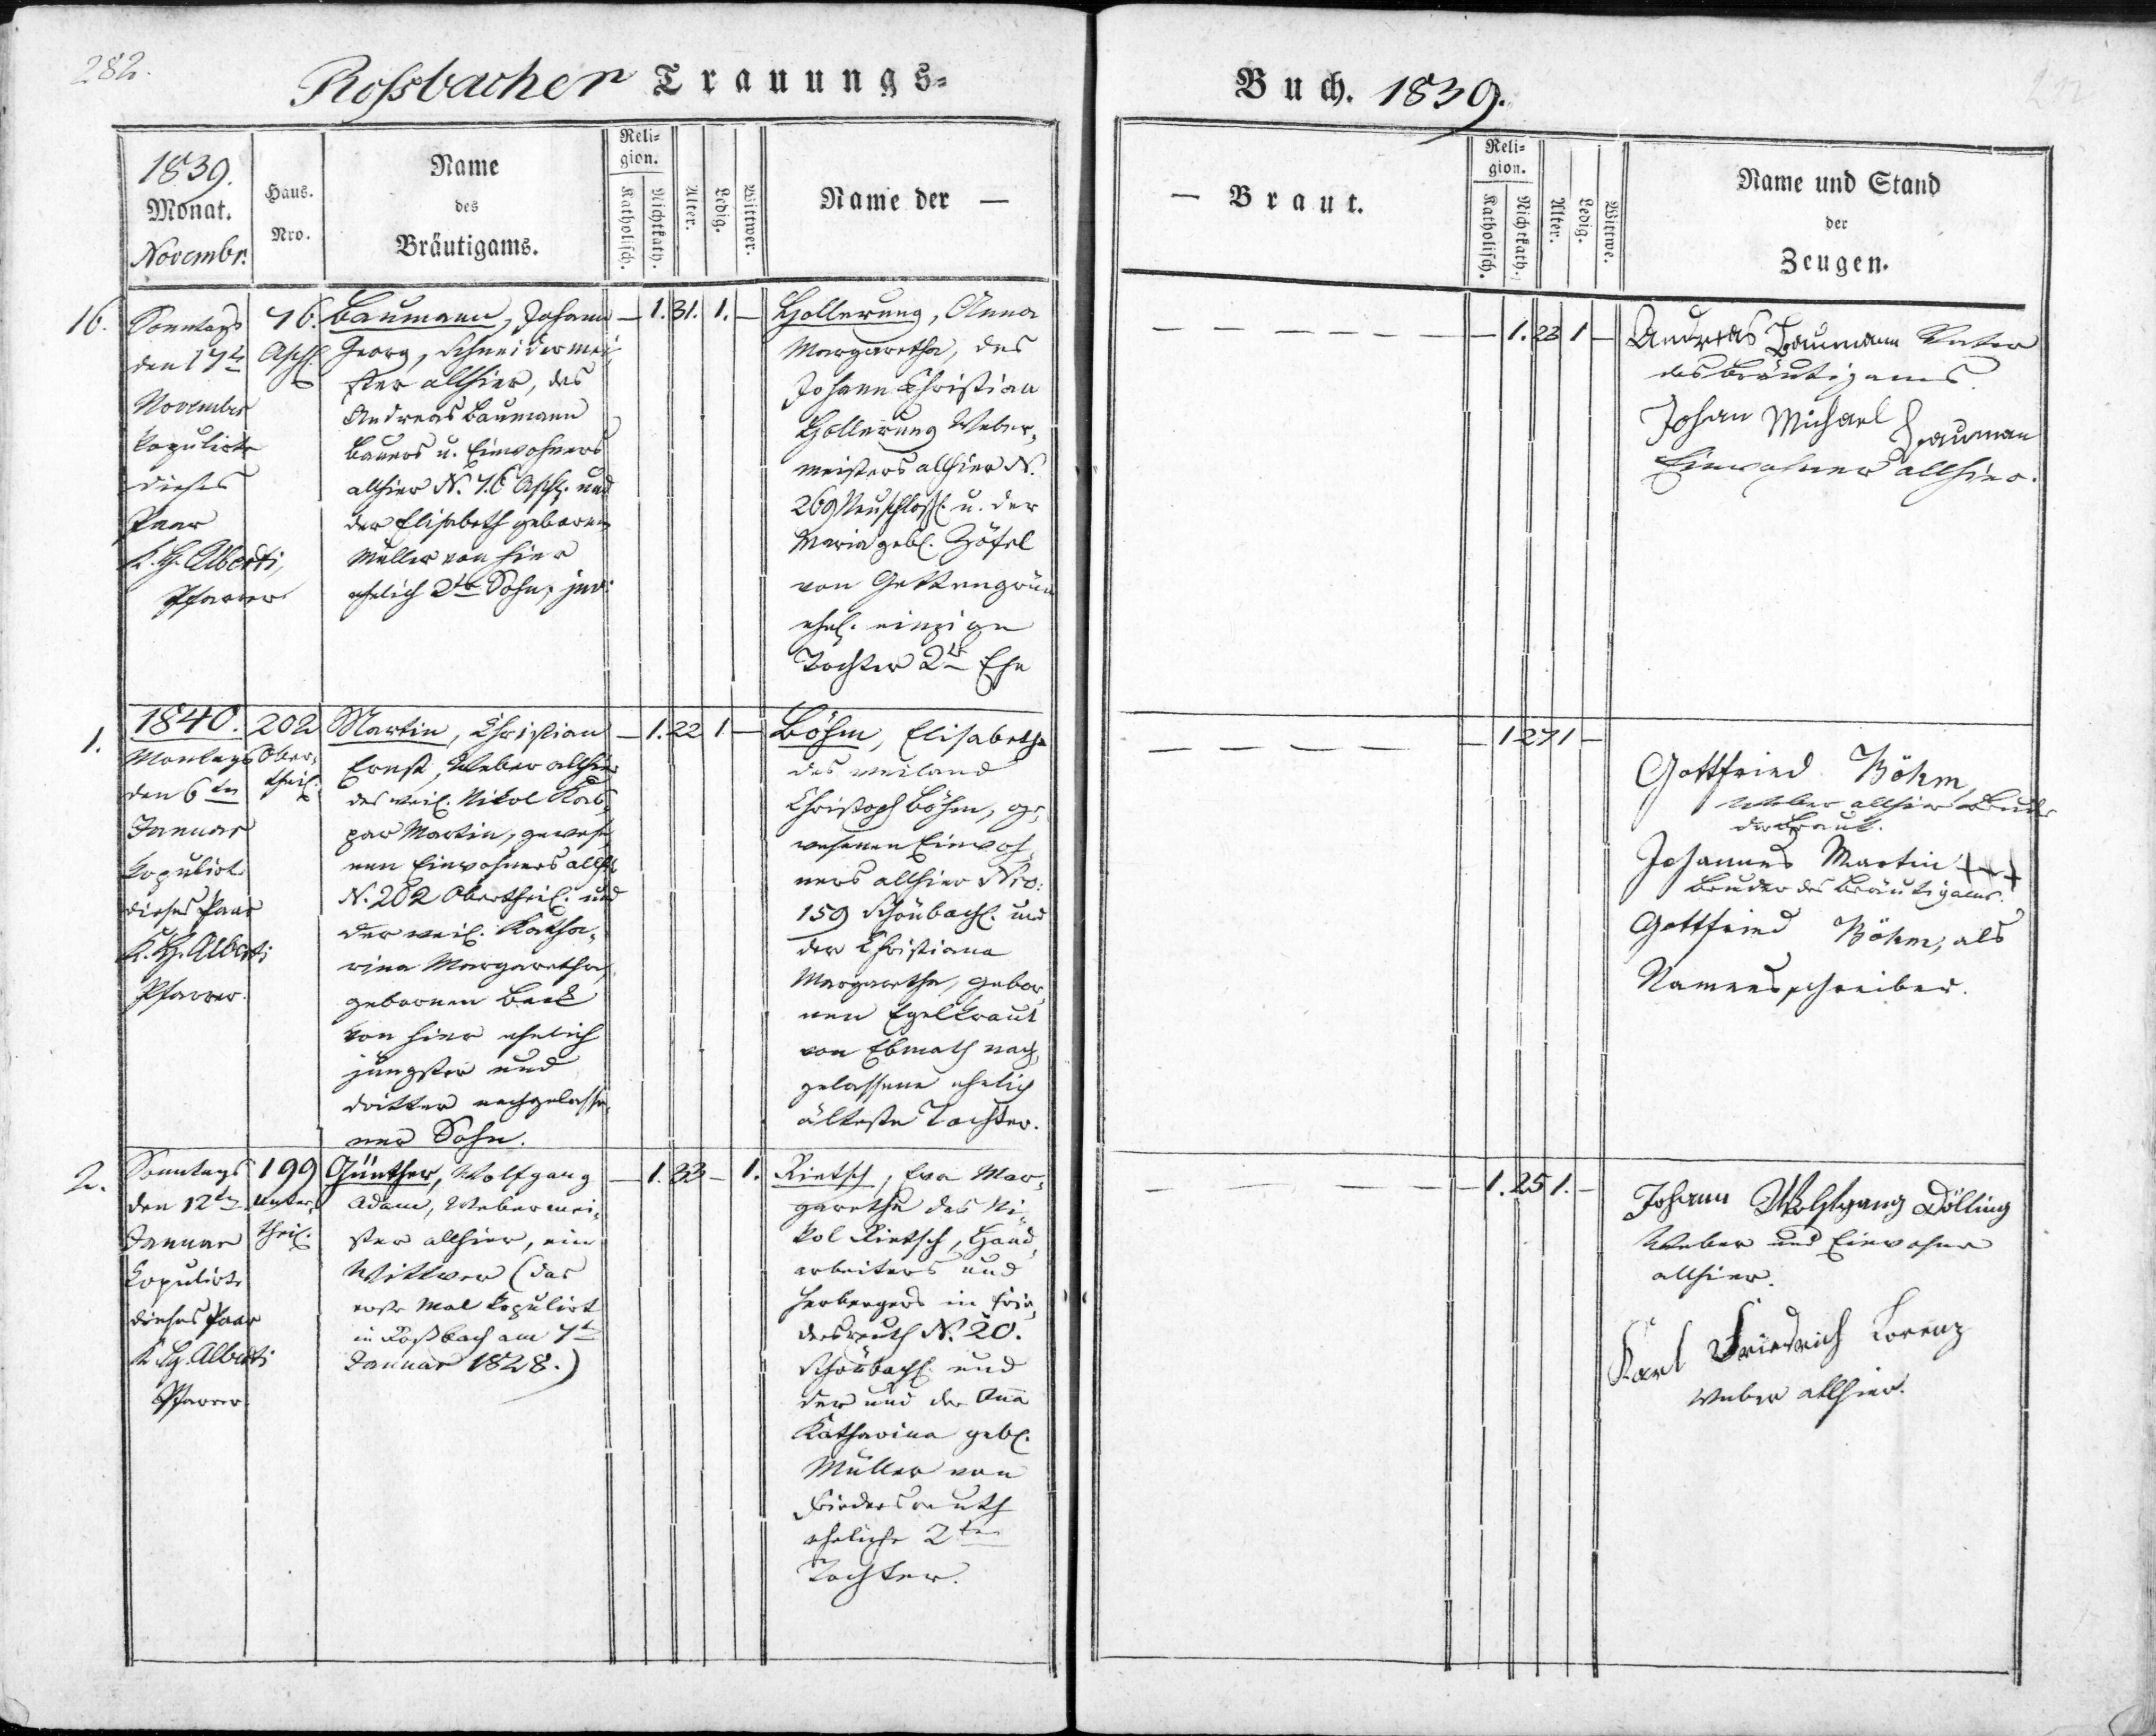 282.
Roßbacher Trauungs=
Buch. 1839.
1839.
Monat.
Novembr.
Haus.
Nro.
Name
des
Bräutigams.
Reli=
gion.
Katholisch.
Nichtkath.
Alter.
Ledig.
Wittwer.
Name der —
— Braut.
Reli=
gion.
Katholisch.
Nichtkath.
Alter.
Ledig.
Wittwe.
Name und Stand
der
Zeugen.
16.
Sonntags
den 17t
November
kopulirte
dieses
Paar
K. H. Alberti,
Pfarrer
76.
Baumann, Johann
Georg, Schneidermei-
ster allhier, des
Andreas Baumann
Bauers u. Einwohners
allhier N. 76 und
der Elisabeth gebornen
Müller von hier
ehelich 2ter Sohn,
— 1. 31. 1. —
Hollerung, Anna
Margaretha, des
Johann Christian
Hollerung Weber-
meisters allhier N.
269 Neuschloßl. u. der
Maria gebl. Zöfel
von Gettengrün
ehel. einzige
Tochter 2ter Ehe
— 1. 23 1 —
Andreas Baumann Vater
des Bräutigams.
Johan Michael Hauman
Einwohner allhier.
1.
1840.
Montags
den 6ten
Januar
kopulirte
dieses Paar
K. H. Alberti
Pfarrer.
202
Ober-
theil.
Martin, Christian
Ernst, Weber allhier
des weil. Nikol Kas-
par Martin, gewese-
nen Einwohners allh.
N. 202 Obertheil. und
der weil. Katha-
rina Margaretha,
gebornen Beck
von hier ehelich
jüngster und
dritter nachgelasse-
ner Sohn.
— 1. 22 1 —
Böhm, Elisabetha
des weiland
Christoph Böhm, ge-
wesenen Einwoh-
ners allhier Nro.
159 Schönbachl. und
der Christiana
Margaretha, gebor-
nen Egelkraut
von Ebmath nach-
gelassene ehelich
älteste Tochter.
— 1 27 1 —
Gottfried Böhm,
Weber allhier Bruder
der Braut.
Johannes Martin +++
Bruder des Bräutigams.
Gottfried Böhm, als
Namensschreiber.
2.
Sonntags
den 12ten
Januar
kopulirte
dieses Paar
K. H. Alberti
Pfarrer
199
Unter-
theil.
Günther, Wolfgang
Adam, Webermei-
ster allhier, ein
Wittwer (das
erste Mal kopulirt
in Roßbach am 7t
Januar 1828.)
— 1. 33 — 1.
Rietsch, Eva Mar-
garetha des Ni-
kol Rietsch, Hand-
arbeiters und
Herbergers in Frie-
dersreuth N. 20.
Schönbachl. und
der und der Anna
Katharina gebl.
Müller von
Friedersreuth
eheliche 2te
Tochter.
— 1. 25 1. —
Johann Wolfgang Dölling
Weber und Einwohner
allhier.
Karl Friedrich Lorenz
Weber allhier.